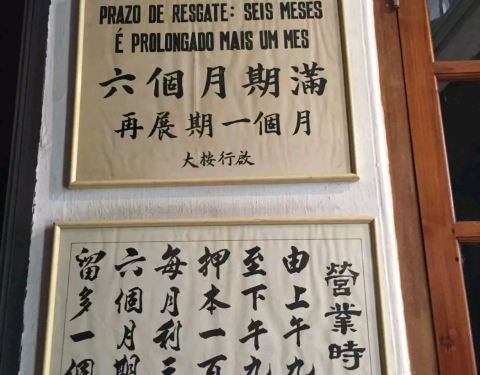 PRAZO DE RESGATE: SEIS MESES
É PROLONGADO MAIS UM MES
六個月期滿
再展期一個月
大按行啟
營業時
由上午九
至下午九
押本一百
每月利三
六個月期
留多一個